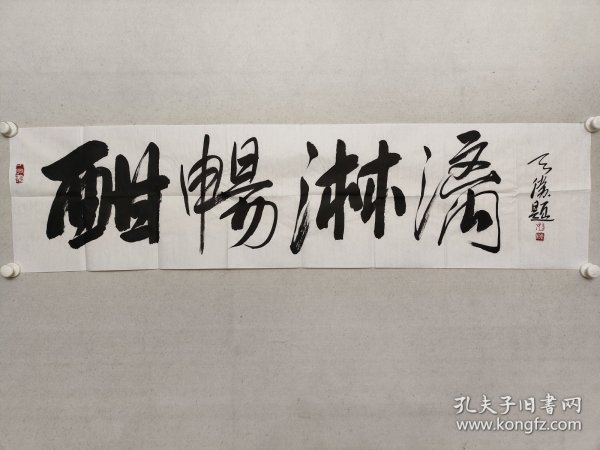 酣暢淋漓
天勝題
孔夫子旧书网
www.kongfz.com